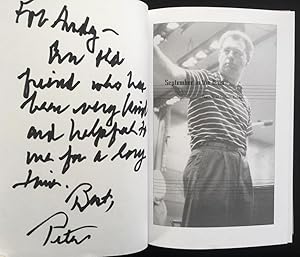 For Andy—
An old
friend who has
been very kind
and helpful to
me for a long
time.
Best,
Peter
September in the Rain